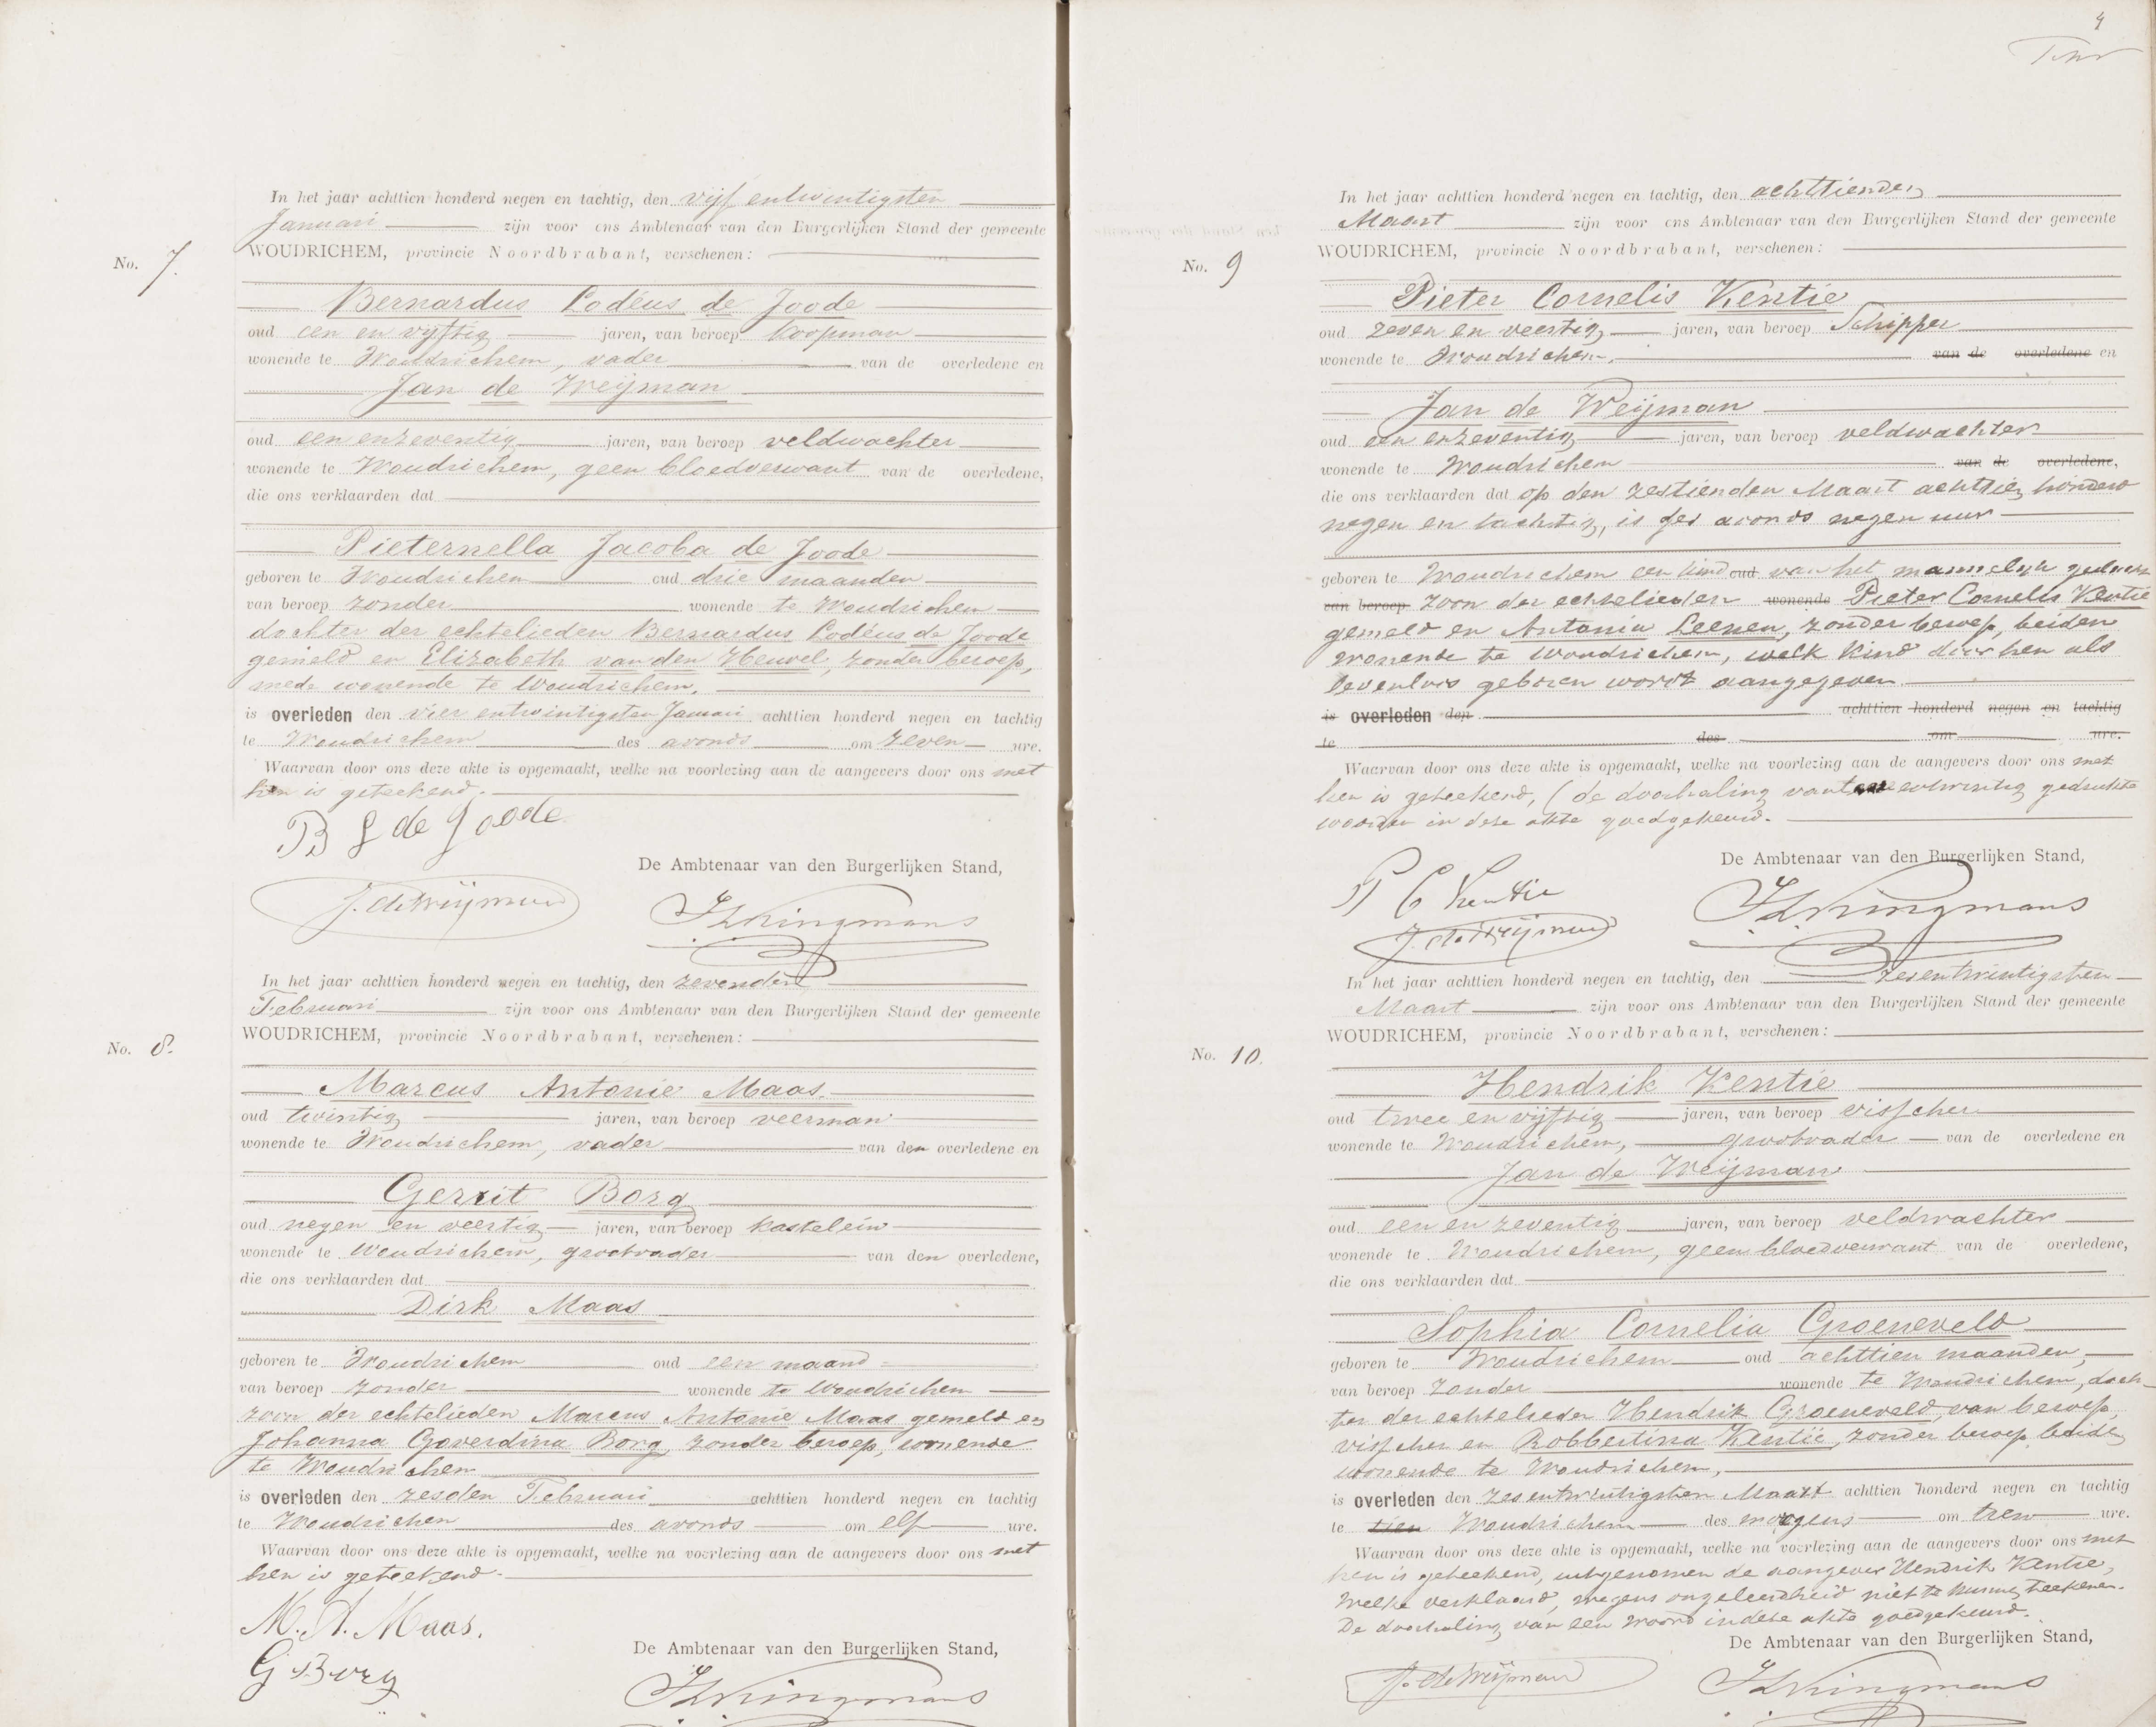 In het jaar achttien honderd negen en tachtig, den vijf entwintigsten
Januari zijn voor ons Ambtenaar van den Burgerlijken Stand der gemeente
No. 7. WOUDRICHEM, provincie Noordbrabant, verschenen:
Bernardus Lodéus de Joode
oud een en vijftig jaren, van beroep koopman
wonende te Woudrichem, vader van de overledene en
Jan de Weijman
oud een enzeventig jaren, van beroep veldwachter
wonende te Woudrichem, geen bloedverwant van de overledene,
die ons verklaarden dat
Pieternella Jacoba de Joode
geboren te Woudrichem oud drie maanden
van beroep zonder wonende te Woudrichem
dochter der echtelieden Bernardus Lodéus de Joode
gemeld en Elizabeth van den Heuvel, zonder beroep,
mede wonende te Woudrichem,
is overleden den vier entwintigsten Januari achttien honderd negen en tachtig
te Woudrichem des avonds om zeven ure.
Waarvan door ons deze akte is opgemaakt, welke na voorlezing aan de aangevers door ons met
hen is geteekend.
B L de Joode
De Ambtenaar van den Burgerlijken Stand,
J. de Weijman
In het jaar achttien honderd negen en tachtig, den zevenden
Februari zijn voor ons Ambtenaar van den Burgerlijken Stand der gemeente
No. 8. WOUDRICHEM, provincie Noordbrabant, verschenen:
Marcus Antonie Maas.
oud twintig jaren, van beroep veerman
wonende te Woudrichem, vader van den overledene en
Gerrit Borg
oud negen en veertig jaren, van beroep kastelein
wonende te Woudrichem, grootvader van den overledene,
die ons verklaarden dat
Dirk Maas
geboren te Woudrichem oud een maand
van beroep zonder wonende te Woudrichem
zoon der echtelieden Marcus Antonie Maas gemeld en
Johanna Goverdina Borg, zonder beroep, wonende
te Woudrichem
is overleden den zesden Februari achttien honderd negen en tachtig
te Woudrichem des avonds om elf ure.
Waarvan door ons deze akte is opgemaakt, welke na voorlezing aan de aangevers door ons met
hen is geteekend.
M. A. Maas.
G Borg
De Ambtenaar van den Burgerlijken Stand,
4
In het jaar achttien honderd negen en tachtig, den achttienden
Maart zijn voor ons Ambtenaar van den Burgerlijken Stand der gemeente
No. 9 WOUDRICHEM, provincie Noordbrabant, verschenen:
Pieter Cornelis Kentie
oud zeven en veertig jaren, van beroep Schipper
wonende te Woudrichem, van de overledene en
Jan de Weijman
oud een enzeventig jaren, van beroep veldwachter
wonende te Woudrichem van de overledene,
die ons verklaarden dat op den zestienden Maart achttien honderd
negen en tachtig, is des avonds negen uur
geboren te Woudrichem een kind oud van het mannelijk geslacht
van beroep zoon der echtelieden wonende Pieter Cornelis Kentie
gemeld en Antonia Leenen, zonder beroep, beiden
wonende te Woudrichem, welk kind door hen als
levenloos geboren wordt aangegeven
is overleden den achttien honderd negen en tachtig
te des om ure.
Waarvan door ons deze akte is opgemaakt, welke na voorlezing aan de aangevers door ons met
hen is geteekend, (de doorhaling van entwintig gedrukte
woorden in deze akte goedgekeurd.
P C Kentie
De Ambtenaar van den Burgerlijken Stand,
J. de Weijman
In het jaar achttien honderd negen en tachtig, den zesentwintigsten
Maart zijn voor ons Ambtenaar van den Burgerlijken Stand der gemeente
No. 10. WOUDRICHEM, provincie Noordbrabant, verschenen:
Hendrik Kentie
oud twee en vijftig jaren, van beroep visscher
wonende te Woudrichem, grootvader van de overledene en
Jan de Weijman
oud een en zeventig jaren, van beroep veldwachter
wonende te Woudrichem, geen bloedverwant van de overledene,
die ons verklaarden dat
Sophia Cornelia Groeneveld
geboren te Woudrichem oud achttien maanden,
van beroep zonder wonende te Woudrichem, doch-
ter der echtelieden Hendrik Groeneveld, van beroep,
visscher en Robbertina Kentie, zonder beroep beide
wonende te Woudrichem,
is overleden den zesentwintigsten Maart achttien honderd negen en tachtig
te Woudrichem des morgens om twee ure.
Waarvan door ons deze akte is opgemaakt, welke na voorlezing aan de aangevers door ons met
hen is geteekend, uitgenomen de aangever Hendrik Kentie,
welke verklaard, wegens ongeleerdheid niet te kunnen teekenen.
De doorhaling van een woord in deze akte goedgekeurd.
De Ambtenaar van den Burgerlijken Stand,
J. de Weijman